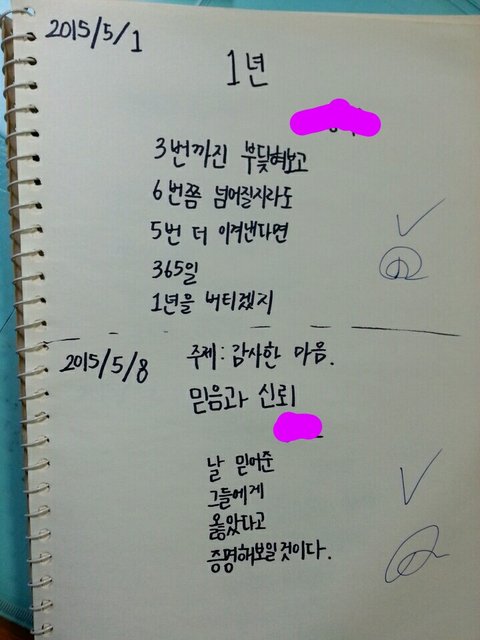 2015/5/1
1년
3번까진 부딪혀보고
6번쯤 넘어질지라도
5번 더 이겨낸다면
365일
1년을 버티겠지
2015/5/8
주제: 감사한 마음.
믿음과 신뢰
날 믿어준
그들에게
옳았다고
증명해보일것이다.